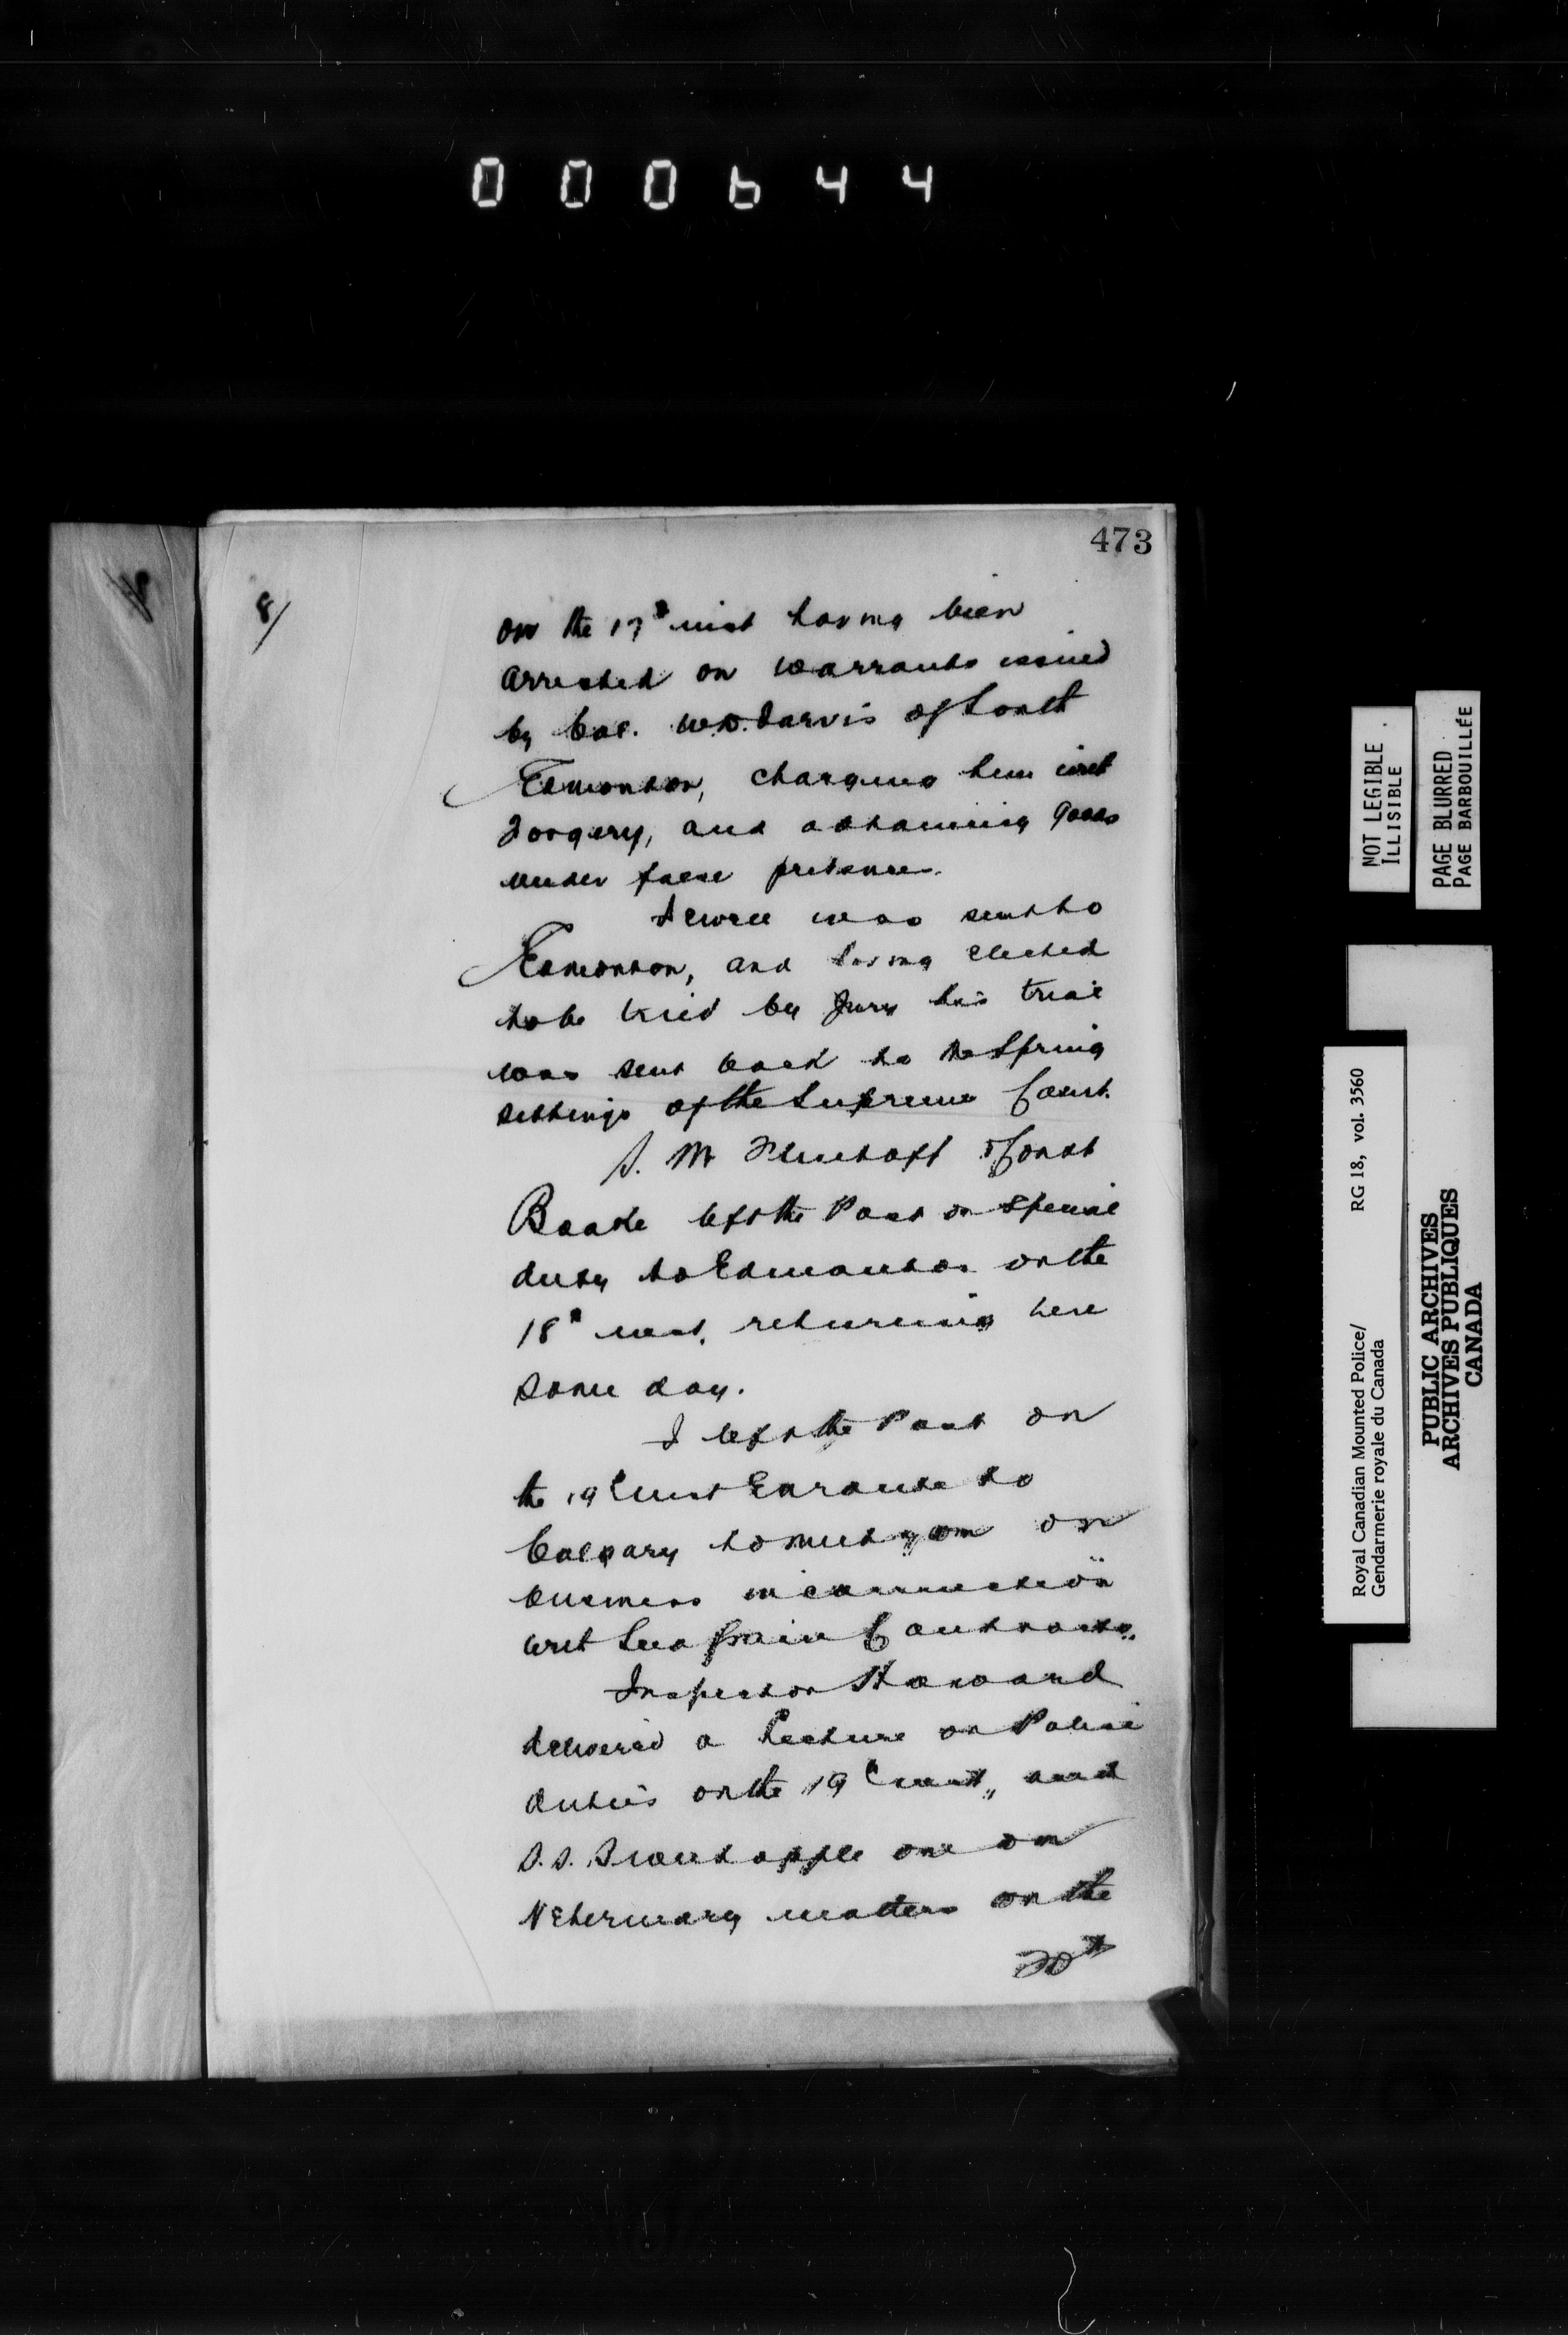 000644
473
8/
on the 17th inst having been
arrested on warrants issued
by Col. W.D. Jarvis of South
Edmonton, charging him with
Forgery, and obtaining goods
under false pretences.
was sent to
Edmonton, and having elected
to be tried by Jury his trial
was sent back to the Spring
sittings of the Supreme Court.
S. M. & Const
left the Post on Special
duty to Edmonton on the
18th inst, returning here
same day.
I left the Post on
the 19th inst Enroute to
Calgary to meet you on
business in connection
with Grain Contracts.
Inspector Howard
delivered a Lecture on Police
duties on the 19th inst, and
S.S. Sweetapple one on
Veterinary matters on the
20th
NOT LEGIBLE
ILLISIBLE
PAGE BLURRED
PAGE BARBOUILLÉE
Royal Canadian Mounted Police/
Gendarmerie royale du Canada
RG 18, vol. 3560
PUBLIC ARCHIVES
ARCHIVES PUBLIQUES
CANADA